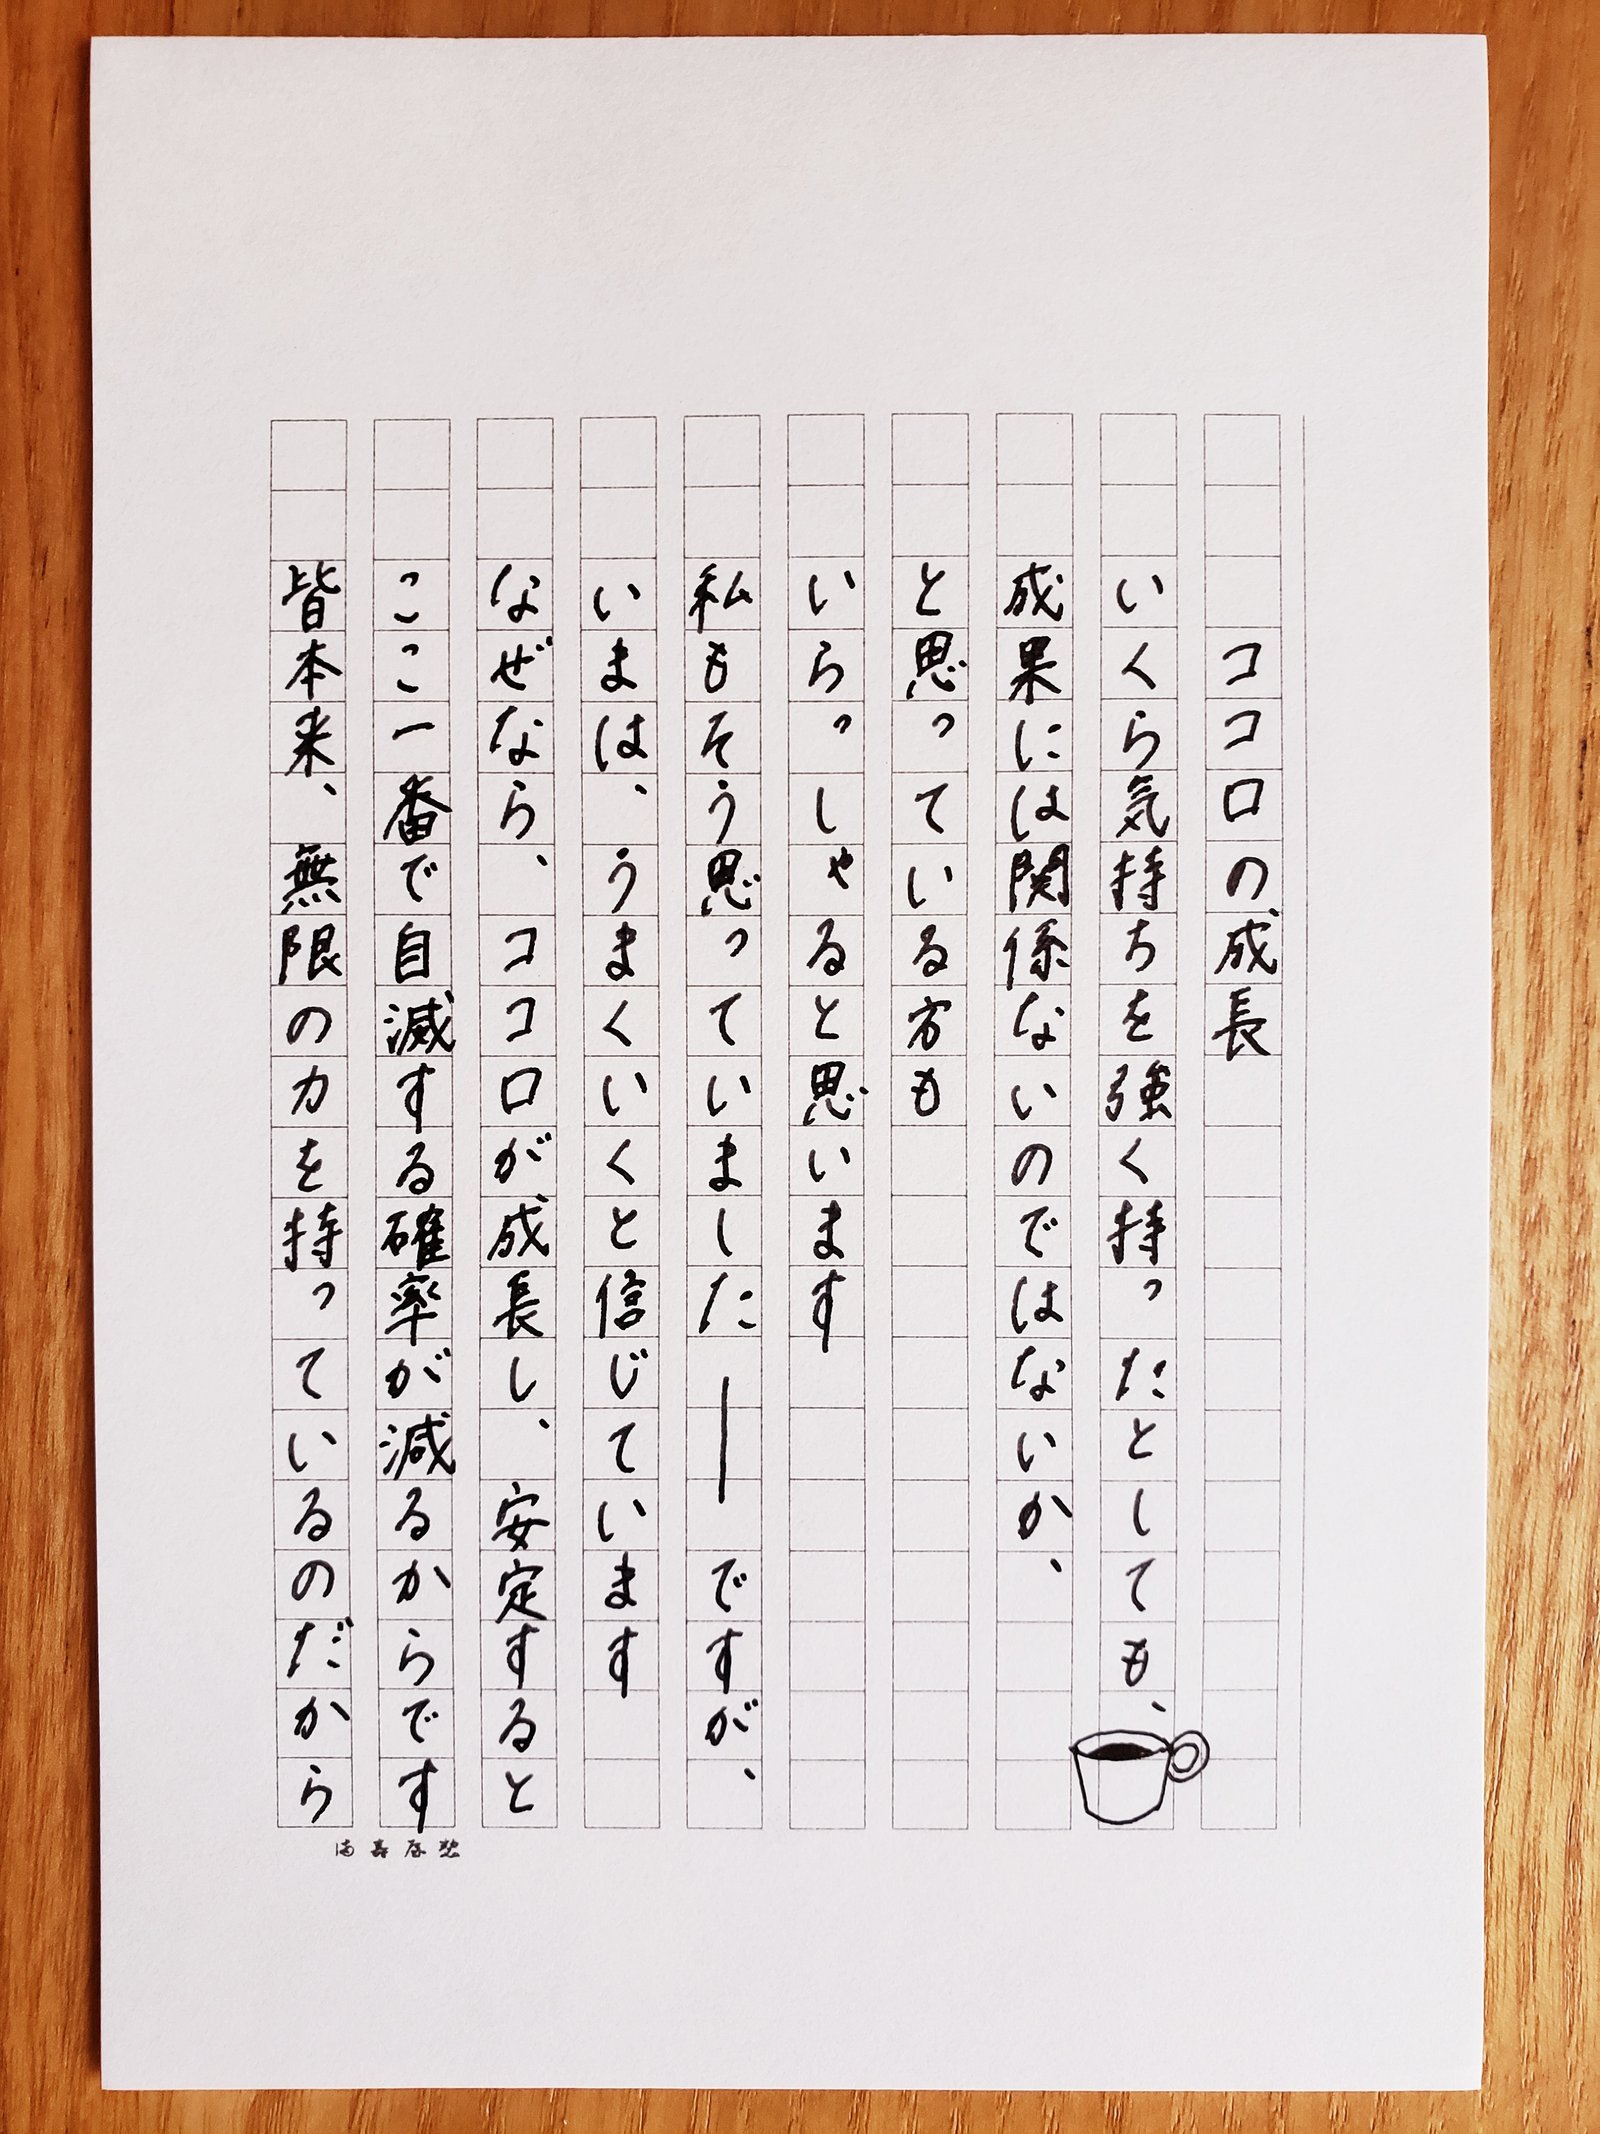 ココロの成長
いくら気持ちを強く持ったとしても、
成果には関係ないのではないか、
と思っている方も
いらっしゃると思います
私もそう思っていました――ですが、
いまは、うまくいくと信じています
なぜなら、ココロが成長し、安定すると
ここ一番で自滅する確率が減るからです
皆本来、無限の力を持っているのだから